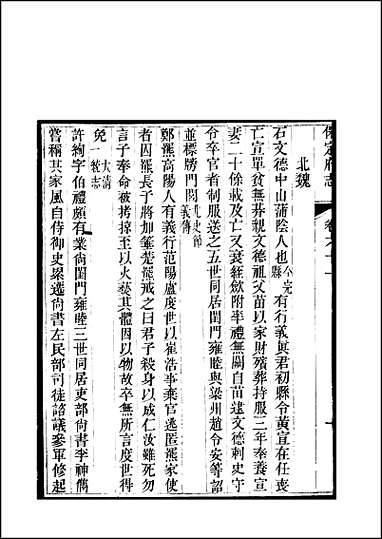 保定府志
卷六十一
北魏
石文德中山蒲陰人也今完縣有行義真君初縣令黃宣在任喪
亡宣單貧無朞親文德祖父苗以家財殯葬持服三年奉養宣
妻二十餘載及亡又衰絰斂附率禮無闕自苗逮文德刺史守
令卒官者制服送之五世同居閨門雍睦與梁州趙令安等詔
並標牓門閭北史節義傳
鄭羆高陽人有義行范陽盧度世以崔浩事棄官逃匿羆家使
者囚羆長子將加箠楚羆戒之曰君子殺身以成仁汝雖死勿
言子奉命被拷掠至以火爇其體因以物故卒無所言度世得
免大清一統志
許絢字伯禮頗有業尚閨門雍睦三世同居吏部尚書李神儁
嘗稱其家風自侍御史累遷尚書左民部司徒諮議參軍修起